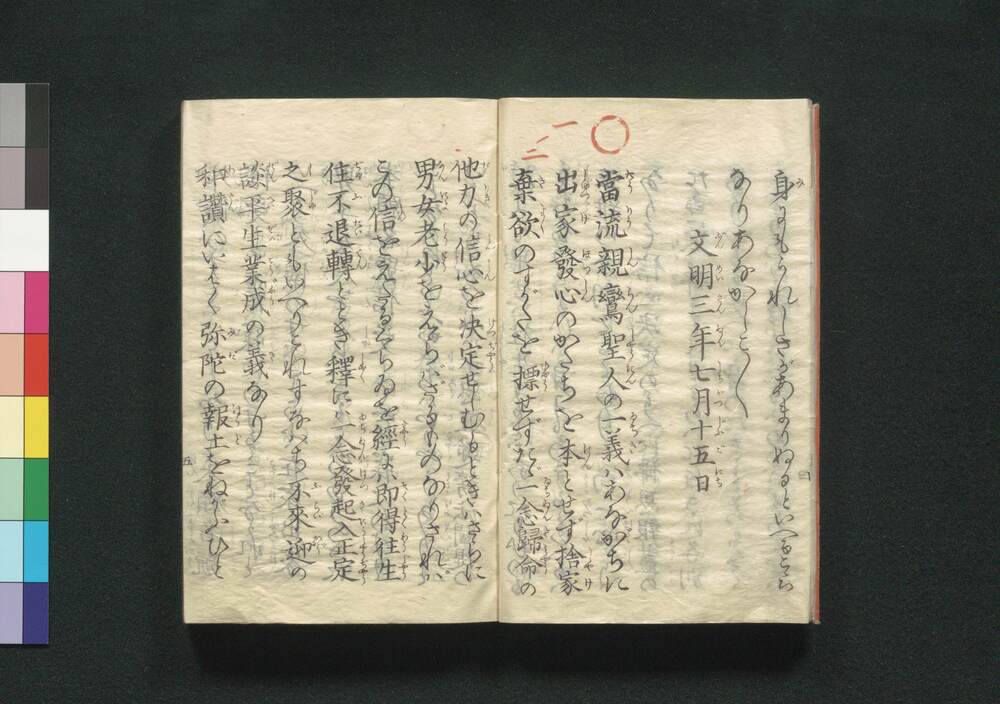 身にもうれしさがあまりぬるといへるこゝろ
なりあなかしこ〳〵
文明三年七月十五日
一ノ二
當流親鸞聖人の一義ハあながちに
出家發心のかたちを本とせず捨家
棄欲のすがたを標せずたゞ一念歸命の
他力の信心を決定せしむるときハさらに
男女老少をえらバざるものなりされバ
この信をえたるくらゐを經にハ即得往生
住不退轉ととき釋にハ一念發起入正定
之聚ともいへりこれすなハち不來迎の
談平生業成の義なり
和讚にいはく弥陀の報土をねがふひと
五